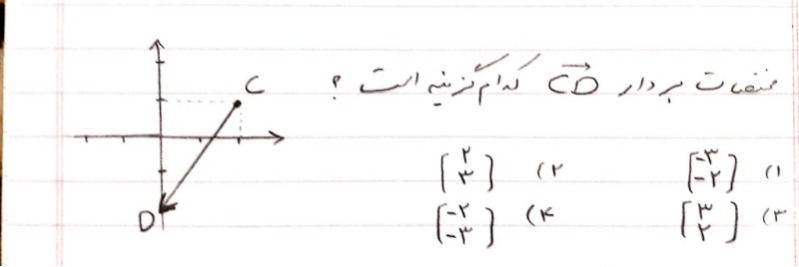 مختصات بردار CD کدام گزینه است ؟
۱) [-۳ -۲]
۲) [۲ ۳]
۳) [۳ ۲]
۴) [-۲ -۳]
C
D